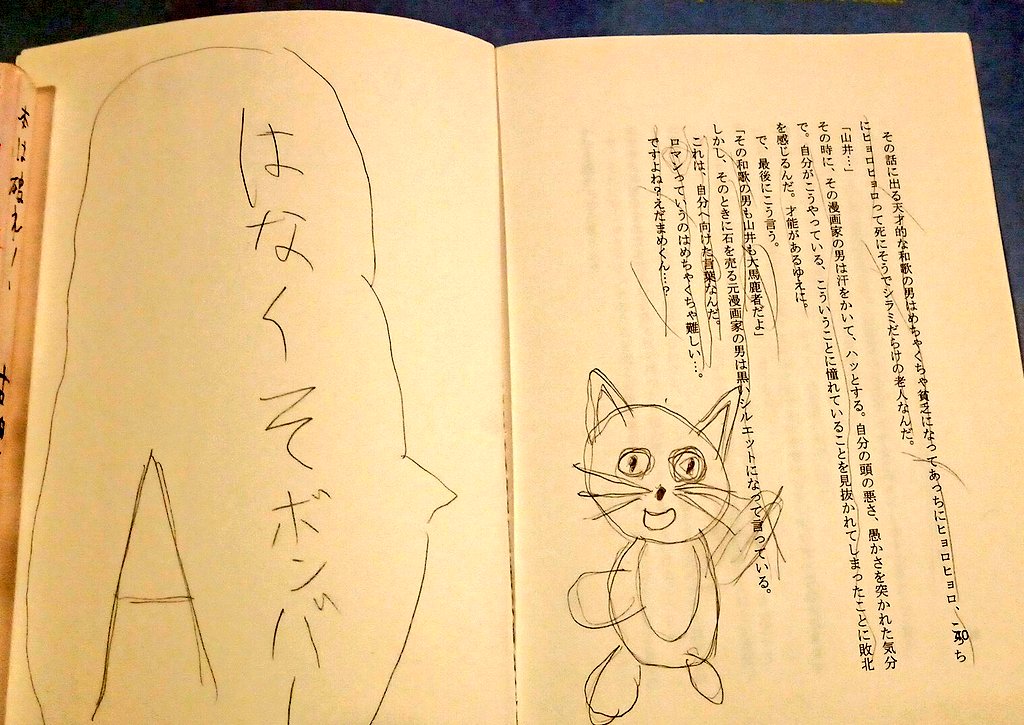 その話に出る天才的な和歌の男はめちゃくちゃ貧乏になってあっちにヒョロヒョロ、こっち
にヒョロヒョロって死にそうでシラミだらけの老人なんだ。
「山井…」
その時に、その漫画家の男は汗をかいて、ハッとする。自分の頭の悪さ、愚かさを突かれた気分
で。自分がこうやっている、こういうことに憧れていることを見抜かれてしまったことに敗北
を感じるんだ。才能があるゆえに。
で、最後にこう言う。
「その和歌の男も山井も大馬鹿者だよ」
しかし、そのときに石を売る元漫画家の男は黒いシルエットになって言っている。
これは、自分へ向けた言葉なんだ。
ロマンっていうのはめちゃくちゃ難しい…。
ですよね?えだまめくん…?
40
はなくそボンバー
A